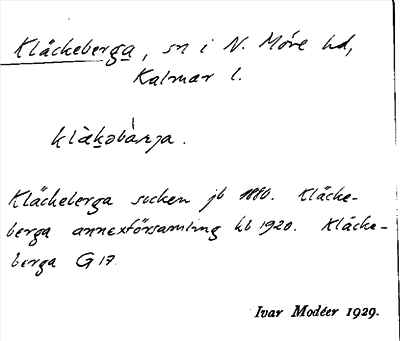 Kläckeberga, sn i N. Möre hd,
Kalmar l.
klàkəbàrɪja.
Kläckeberga socken jb 1880. Kläcke-
berga annexförsamling kb 1920. Kläcke-
berga G 17.
Ivar Modéer 1929.